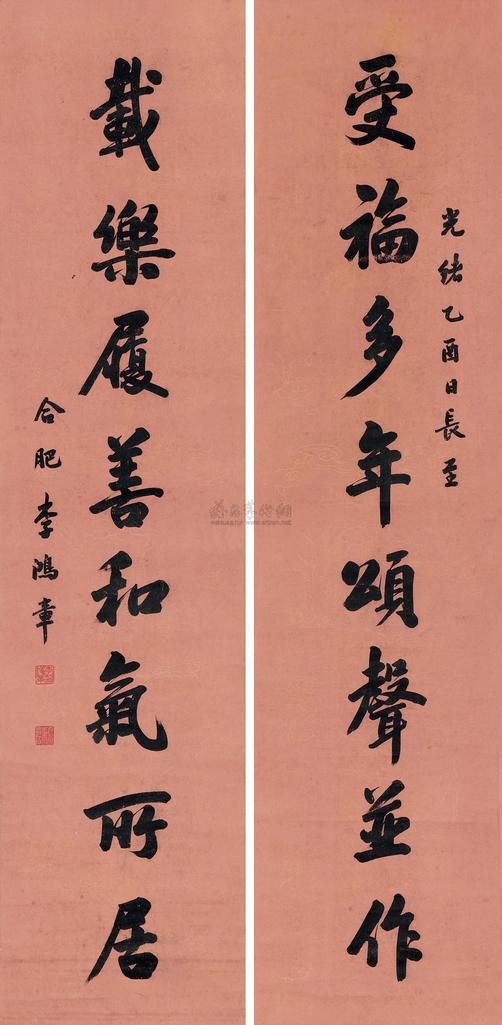 光緒乙酉日長至
受福多年頌聲並作
載樂履善和氣所居
合肥李鴻章